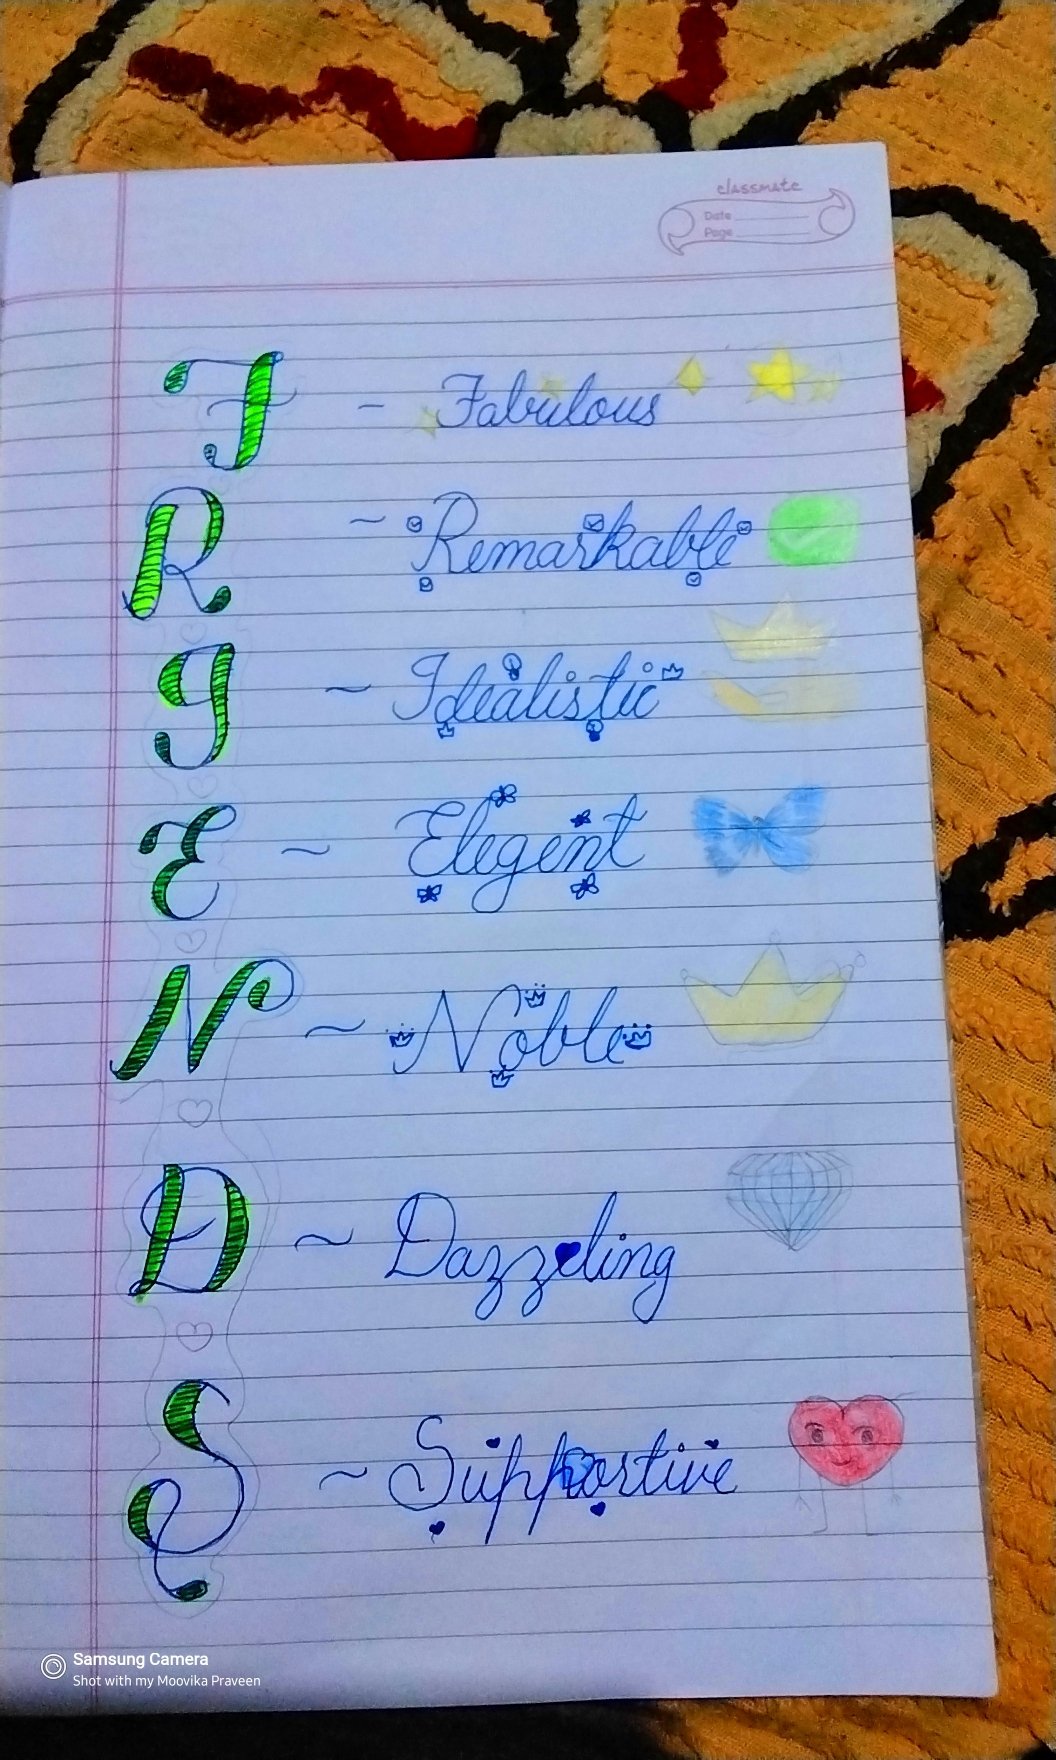 classmate
Date
Page
F - Fabulous
R ~ Remarkable
I ~ Idealistic
E ~ Elegent
N ~ Noble
D ~ Dazzling
S ~ Supportive
Samsung Camera
Shot with my Moovika Praveen